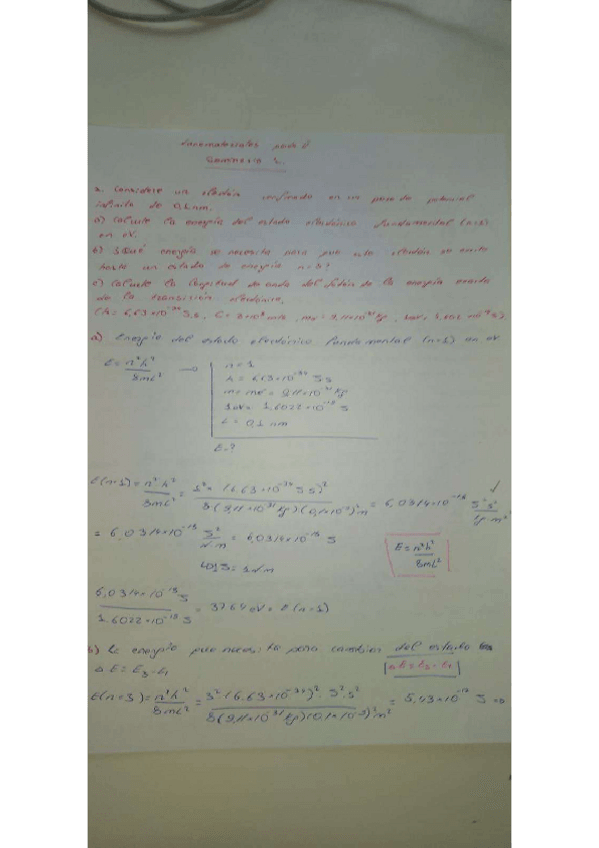 Nanomateriales
Seminario 1.
2. Considere un electrón confinado en un pozo de potencial
infinito de 0,1 nm.
a) Calcule la energía del estado electrónico fundamental (n=1)
en eV.
b) ¿Qué energía se necesita para que este electrón se excite
hasta un estado de energía n=3?
c) Calcule la longitud de onda del fotón de la energía exacta
de la transición electrónica.
a) Energía del estado electrónico fundamental (n=1) en eV
E = n²h² / 8mL² → n=1
h = 6,63×10⁻³⁴ J s
m = me = 9,11×10⁻³¹ Kg
1 eV = 1.6022×10⁻¹⁹ J
L = 0,1 nm
E=?
E(n=1) = n²h² / 8mL² = 1² (6.63×10⁻³⁴ J s)² / 8 (9,11×10⁻³¹ Kg)(0,1×10⁻⁹)² m² = 6,0314×10⁻¹⁸ J² s² / Kg m²
= 6,0314×10⁻¹⁸ J² / N m = 6,0314×10⁻¹⁸ J
E = n²h² / 8mL²
1 J = 1 N m
6,0314×10⁻¹⁸ J / 1.6022×10⁻¹⁹ J = 37.64 eV = E(n=1)
b) La energía que necesita para cambiar del estado
ΔE = E₃ - E₁
ΔE = E₃ - E₁
E(n=3) = n²h² / 8mL² = 3² (6.63×10⁻³⁴)² J² s² / 8 (9,11×10⁻³¹ Kg)(0,1×10⁻⁹)² m² = 5,43×10⁻¹⁷ J